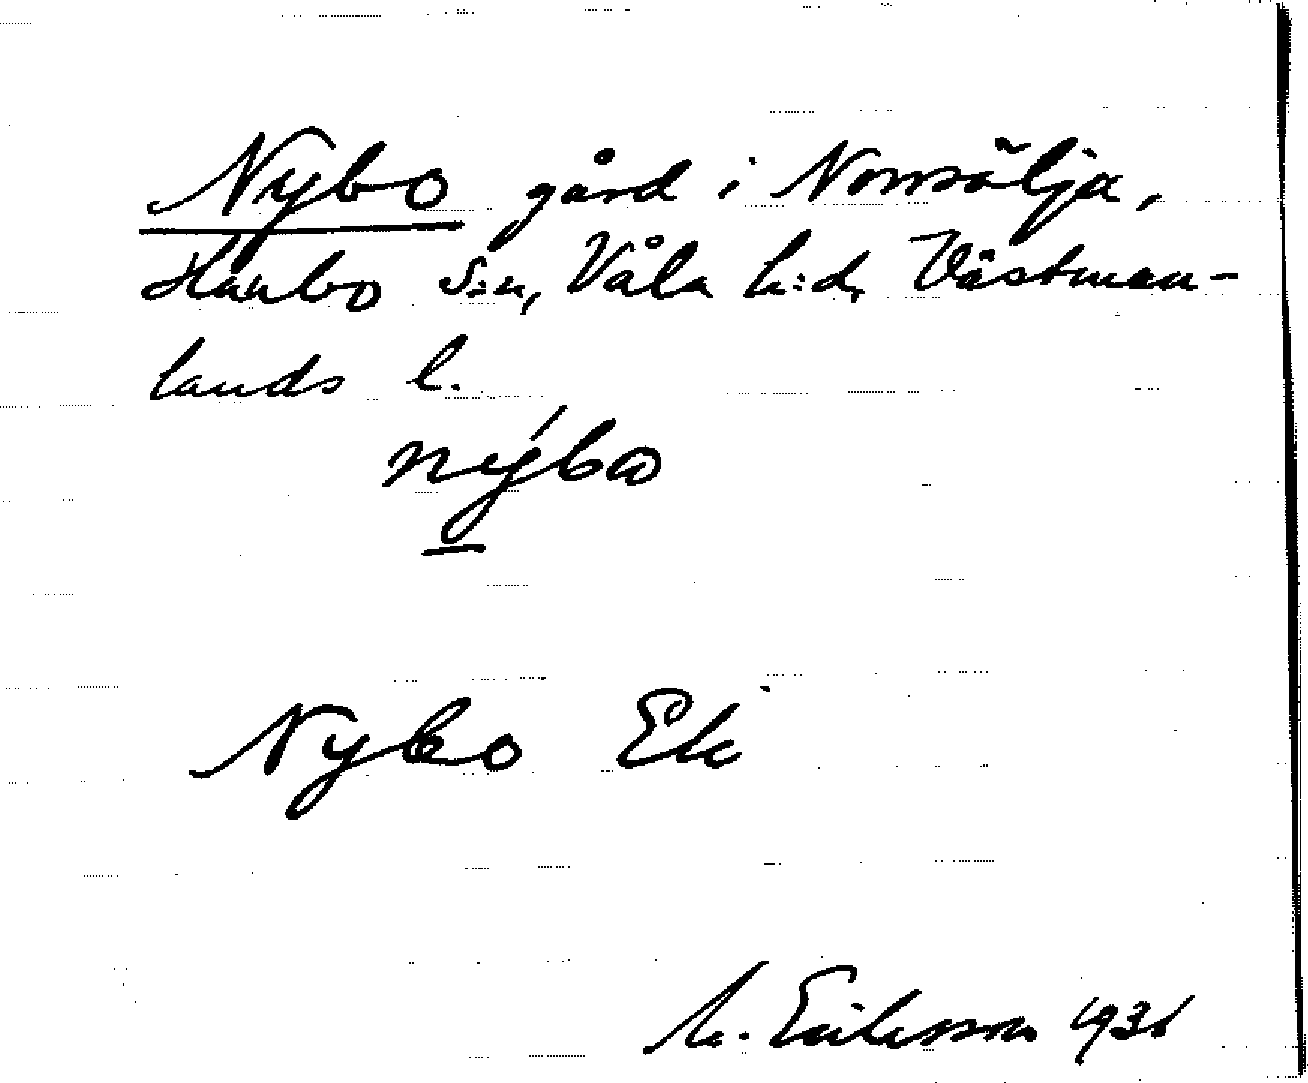 Nybo gård i Norrsälja,
Harbo s:n, Våla h:d, Västman-
lands l.
nýbω
Nybo Ek
M. Eriksson 1931